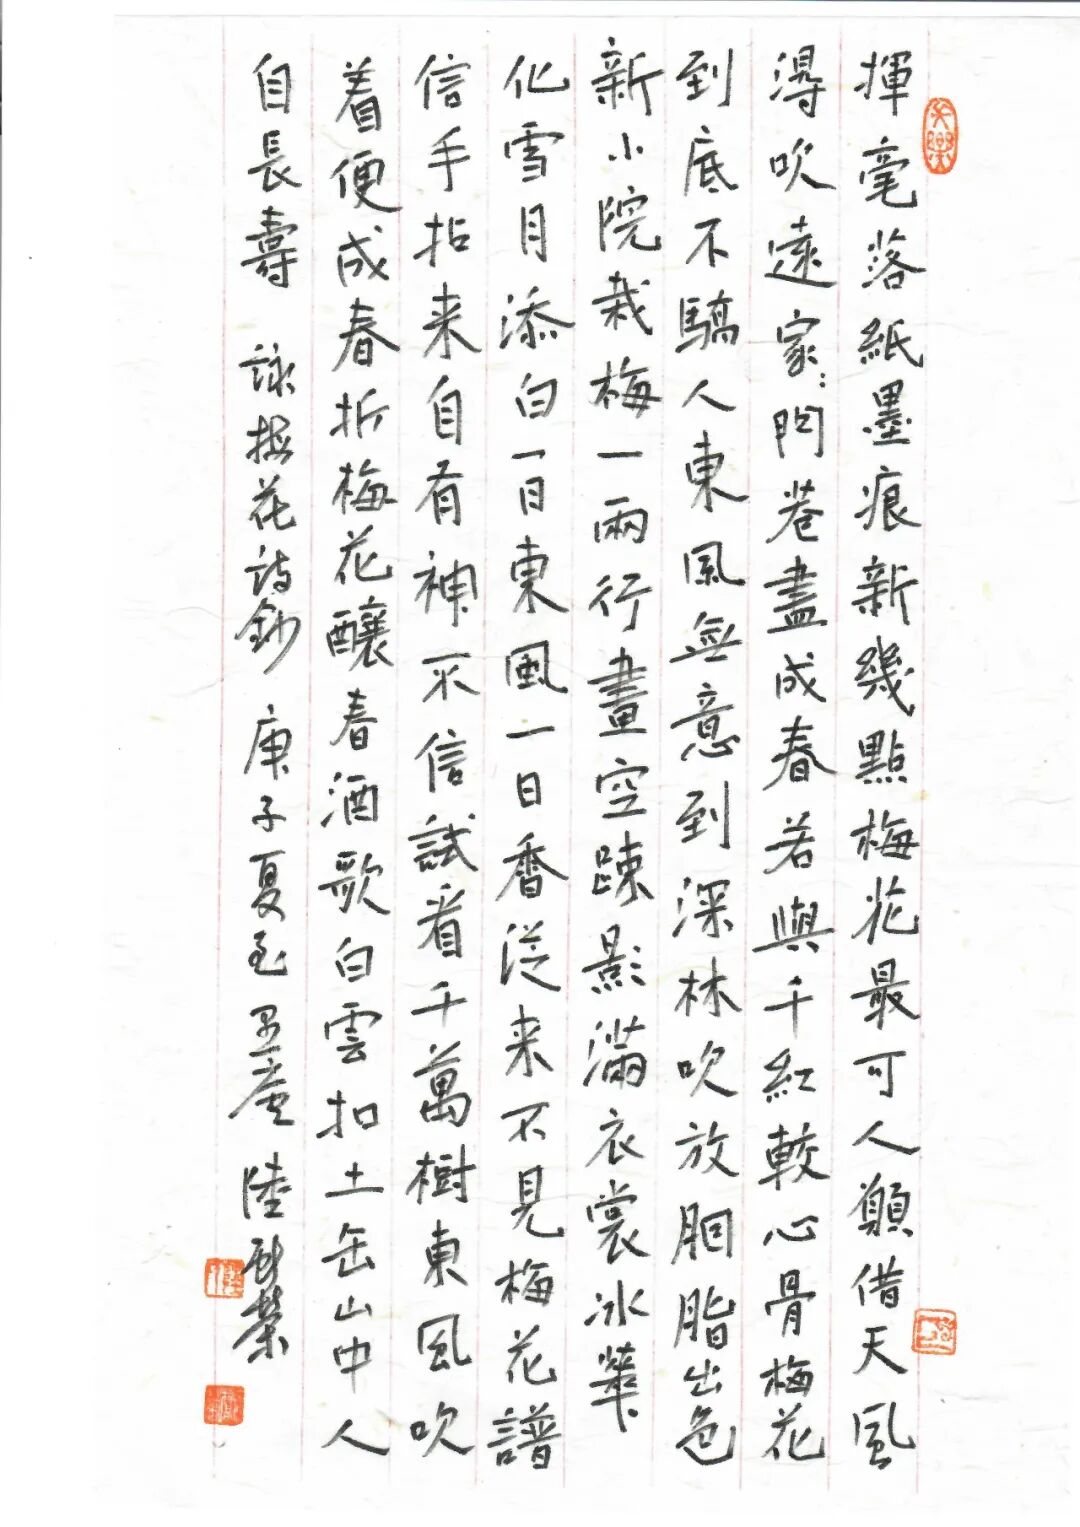 揮毫落紙墨痕新幾點梅花最可人願借天風
得吹遠家:門巷盡成春若與千紅較心骨梅花
到底不驕人東風無意到深林吹放胭脂出色
新小院栽梅一兩行畫空疎影滿衣裳冰華
化雪月添白一日東風一日香從来不見梅花譜
信手拈来自有神不信試看千萬樹東風吹
着便成春折梅花釀春酒歌白雲扣土缶山中人
自長壽 詠梅花詩鈔 庚子夏至 庵 陸